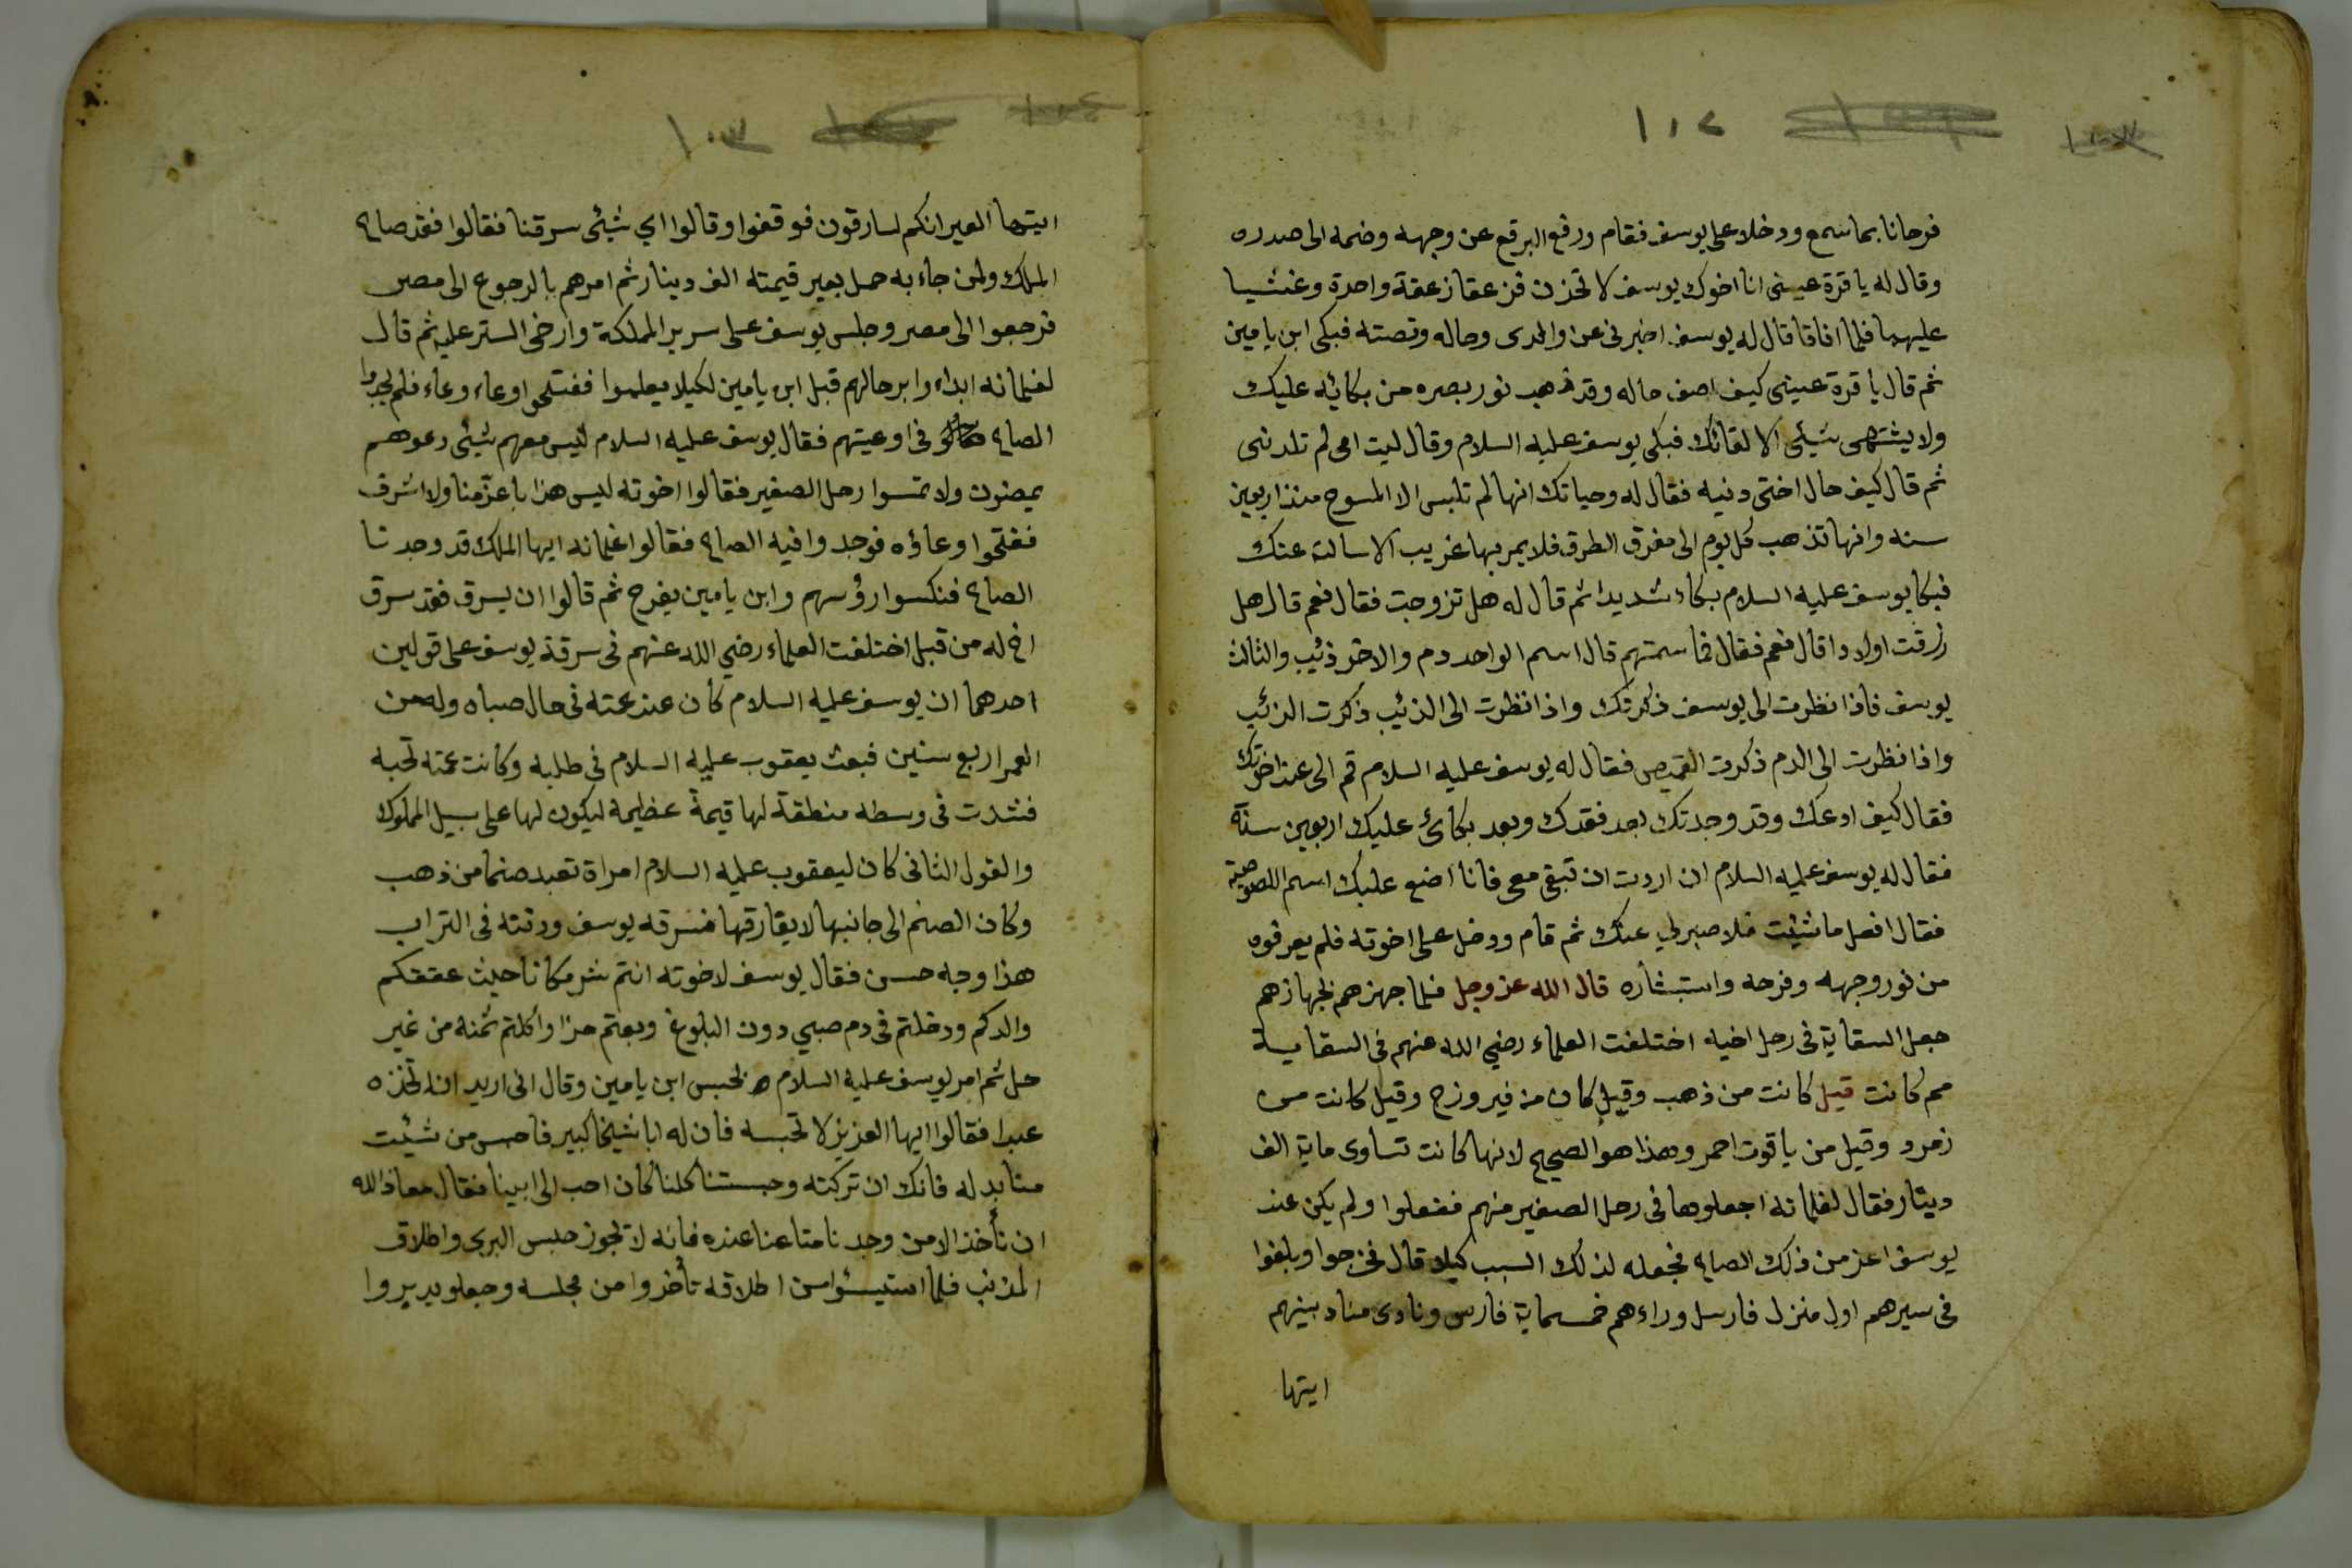 ١٠٢
فرحانا بما سمع ودخلا على يوسف فقام ورفع البرقع عن وجهه وضمه الى صدره
وقال له يا قرة عيني انا اخوك يوسف لا تحزن فزعقا زعقة واحدة وغشيا
عليهما فلما افاقا قال له يوسف اخبرني عن والدى وحاله وقصته فبكى ابن يامين
ثم قال يا قرة عيني كيف اصف حاله وقد ذهب نور بصره من بكائه عليك
ولا يشتهى شيئى الا لقائك فبكى يوسف عليه السلام وقال ليت امى لم تلدنى
ثم قال كيف حال اختي دنيه فقال له وحياتك انها لم تلبس الا المسوح منذ اربعين
سنه وانها تذهب كل يوم الى مفرق الطرق فلا يمر بها غريب الا سالته عنك
فبكا يوسف عليه السلام بكاء شديدا ثم قال له هل تزوجت فقال نعم قال هل
رزقت اولادا قال نعم فقال فما سمتهم قال اسم الواحد دم والاخر ذئب والثالث
يوسف فاذا نظرت الى يوسف ذكرتك واذا نظرت الى الذئب ذكرت الذئب
واذا نظرت الى الدم ذكرت القميص فقال له يوسف عليه السلام قم الى عند اخوتك
فقال كيف ادعك وقد وجدتك بعد فقدك وبعد بكائ عليك اربعين سنة
فقال له يوسف عليه السلام ان اردت ان تبقى معى فانا اضع عليك اسم اللصوصية
فقال افعل ما شئت فلا صبر لي عنك ثم قام ودخل على اخوته فلم يعرفوه
من نور وجهه وفرحه واستبشاره قال الله عز وجل فلما جهزهم بجهازهم
جعل السقاية فى رحل اخيه اختلفت العلماء رضي الله عنهم فى السقاية
مم كانت قيل كانت من ذهب وقيل كان من فيروزج وقيل كانت من
زمرد وقيل من ياقوت احمر وهذا هو الصحيح لانها كانت تساوى ماية الف
دينار فقال لغلمانه اجعلوها فى رحل الصغير منهم ففعلوا ولم يكن عند
يوسف اعز من ذلك الصاع فجعله لذلك السبب كيلا قال فخرجوا وبلغوا
فى سيرهم اول منزل فارسل وراءهم خمسماية فارس ونادى مناد بينهم
ايتها
١٠٣
ايتها العير انكم لسارقون فوقفوا وقالوا اي شيئى سرقنا فقالوا فقد صاع
الملك ولمن جاء به حمل بعير قيمته الف دينار ثم امرهم بالرجوع الى مصر
فرجعوا الى مصر وجلس يوسف على سرير المملكة وارخى الستر عليه ثم قال
لغلمانه ابداوا برحالهم قبل ابن يامين لكيلا يعلموا ففتحوا وعاء وعاء فلم يجدوا
الصاع فى اوعيتهم فقال يوسف عليه السلام ليس معهم شيئى دعوهم
يمضون ولا تمسوا رحل الصغير فقالوا اخوته ليس هذا باعز منا ولا اشرف
ففتحوا وعاؤه فوجدوا فيه الصاع فقالوا غلمانه ايها الملك قد وجدنا
الصاع فنكسوا رؤسهم وابن يامين يفرح ثم قالوا ان يسرق فقد سرق
اخ له من قبل اختلفت العلماء رضي الله عنهم فى سرقة يوسف على قولين
احدهما ان يوسف عليه السلام كان عند عمته فى حال صباه وله من
العمر اربع سنين فبعث يعقوب عليه السلام فى طلبه وكانت عمته تحبه
فشدت فى وسطه منطقة لها قيمة عظيمة ليكون لها على سبيل المملوك
والقول الثانى كان ليعقوب عليه السلام امراة تعبد صنما من ذهب
وكان الصنم الى جانبها لا يفارقها فسرقه يوسف ودفنه فى التراب
هذا وجه حسن فقال يوسف لاخوته انتم شر مكانا حيث عققتكم
والدكم ودخلتم فى دم صبي دون البلوغ وبعتم حرا واكلتم ثمنه من غير
حل ثم امر يوسف عليه السلام بحبس ابن يامين وقال انى اريد ان اتخذه
عبدا فقالوا ايها العزيز لا تحبسه فان له ابا شيخا كبير فاحبس من شئت
منا بدله فانك ان تركته وحبستنا كلنا لكان احب الى ابينا فقال معاذ الله
ان نأخذ الا من وجدنا متاعنا عنده فانه لا يجوز حبس البرى واطلاق
المذنب فلما استيئسوا من اطلاقه تأخروا من مجلسه وجعلو يديروا